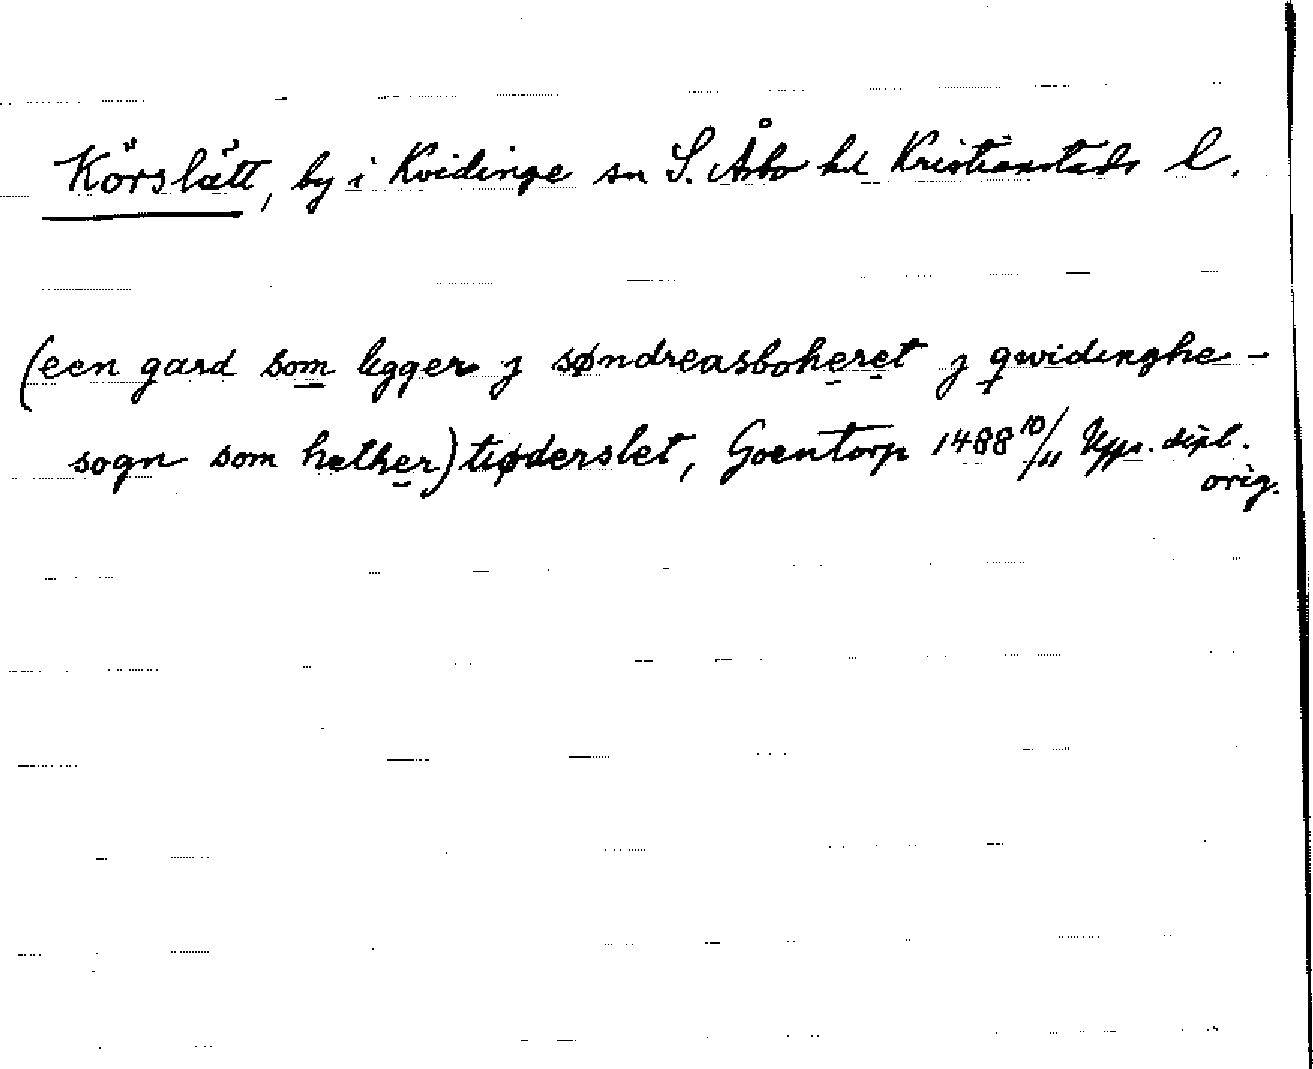 Körslätt, by i Kvidinge sn S. Åsbo hd Kristianstads l.
(een gard som ligger j søndreasboheret j qwidinghe-
sogn som hether) tiøderslet, Goentorp 1488 10/11 Upps. dipl.
orig.